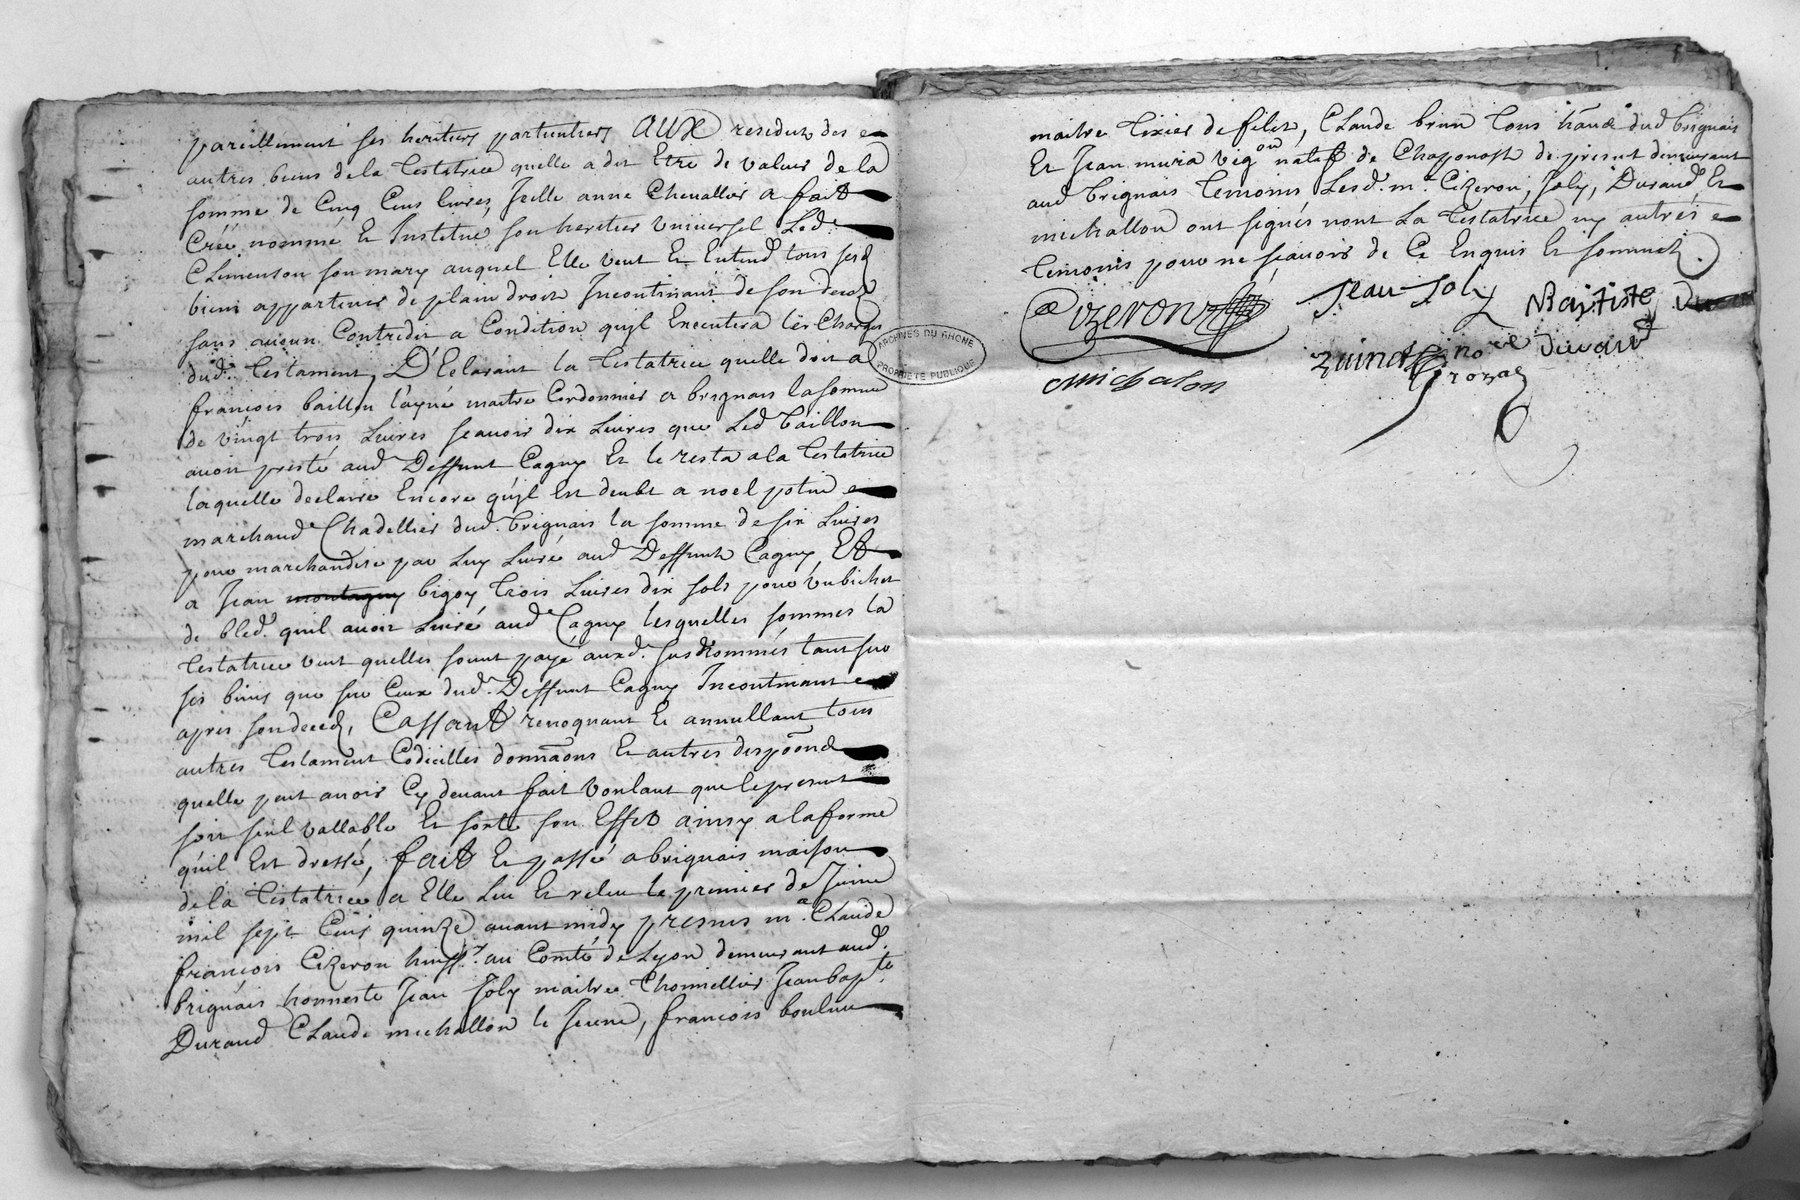 pareillement ses heritiers particuliers AUX residut des
autres biens de la Testatrice quelle a dit Etre de valeur de la
somme de Cinq Cens livres, Icelle anne Chevallier a fait
Créé nommé Et Institué son heritier Universel Led.
Climenson son mary auquel Elle veut Et Entend tous sesd
biens appartenir de plain droit Incontinant de son deced
sans aucun Contredit a Condition quyl Executera les Charges
dud. Testament, D'Eclarant la Testatrice quelle doit a
françois baillon l'ayné maitre Cordonnier a brignais la somme
de vingt trois Livres scavoir dix Livres que Led baillon
avoit presté aud Deffunt Cagny Et le resta a la Testatrice
laquelle declaire Encore quyl Est deubt a noel
marchand Chadellier dud. brignais la somme de six Livres
pour marchandise par Luy Livré aud Deffunt Cagny Et
a Jean bigoy Trois Livres dix sols pour un bichet
de bled. quil avoit Livré aud Cagny lesquelles sommes la
Testatrice veut quelles soient payé auxd. susNommés tant sur
ses biens que sur Ceux dud. Deffunt Cagny Incontinant
apres son deced, Cassant revoquant Et annullant tous
autres Testament Codicilles donnãons Et autres dispõond
quelle peut avoir Cy devant fait voulant que le present
soit seul vallable Et sorte son Effet ainsy a la forme
qu'il Est dressé, fait Et passé a brignais maison
de la Testatrice a Elle Lue Et relue le premier de Juin
mil sept Cens quinze avant midy presens me. CLaude
françois Cizeron huiss.r au Comté de Lyon demeurant aud.
brignais honneste Jean Joly maitre Thonnellier Jean bapte.
Durand CLaude michallon le Jeune, françois
maitre Tixier de filet, CLaude brun tous hãns dud brignais
Et Jean mura vigon natif de Chaponost de present demeurant
aud brignais Temoins Lesd. m.e Cizeron, Joly, Durand Et
michallon ont signés non La Testatrice ny autres
temoins pour ne scavoir de Ce Enquis Et sommez.
Cizeron Jean Joly Baptiste
Durand
michalon
ARCHIVES DU RHONE
PROPRIETE PUBLIQUE